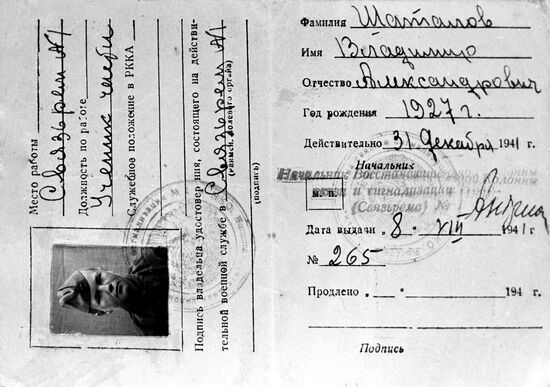 Место работы Связьрем №1
Должность по работе
Ученик части
Служебное положение в РККА
Подпись владельца удостоверения, состоящего на действительной военной службе Связьрем №1
(подпись)
Фамилия Шаталов
Имя Владимир
Отчество Александрович
Год рождения 1927 г.
Действительно 31 декабря 1941 г.
Начальник
Начальник Восстановительной Колонны
м. п.
и сигнализации
(Связьрема) №
Дата выдачи „8" VIII 1941 г.
№ 265
Продлено „ " 194 г.
Подпись